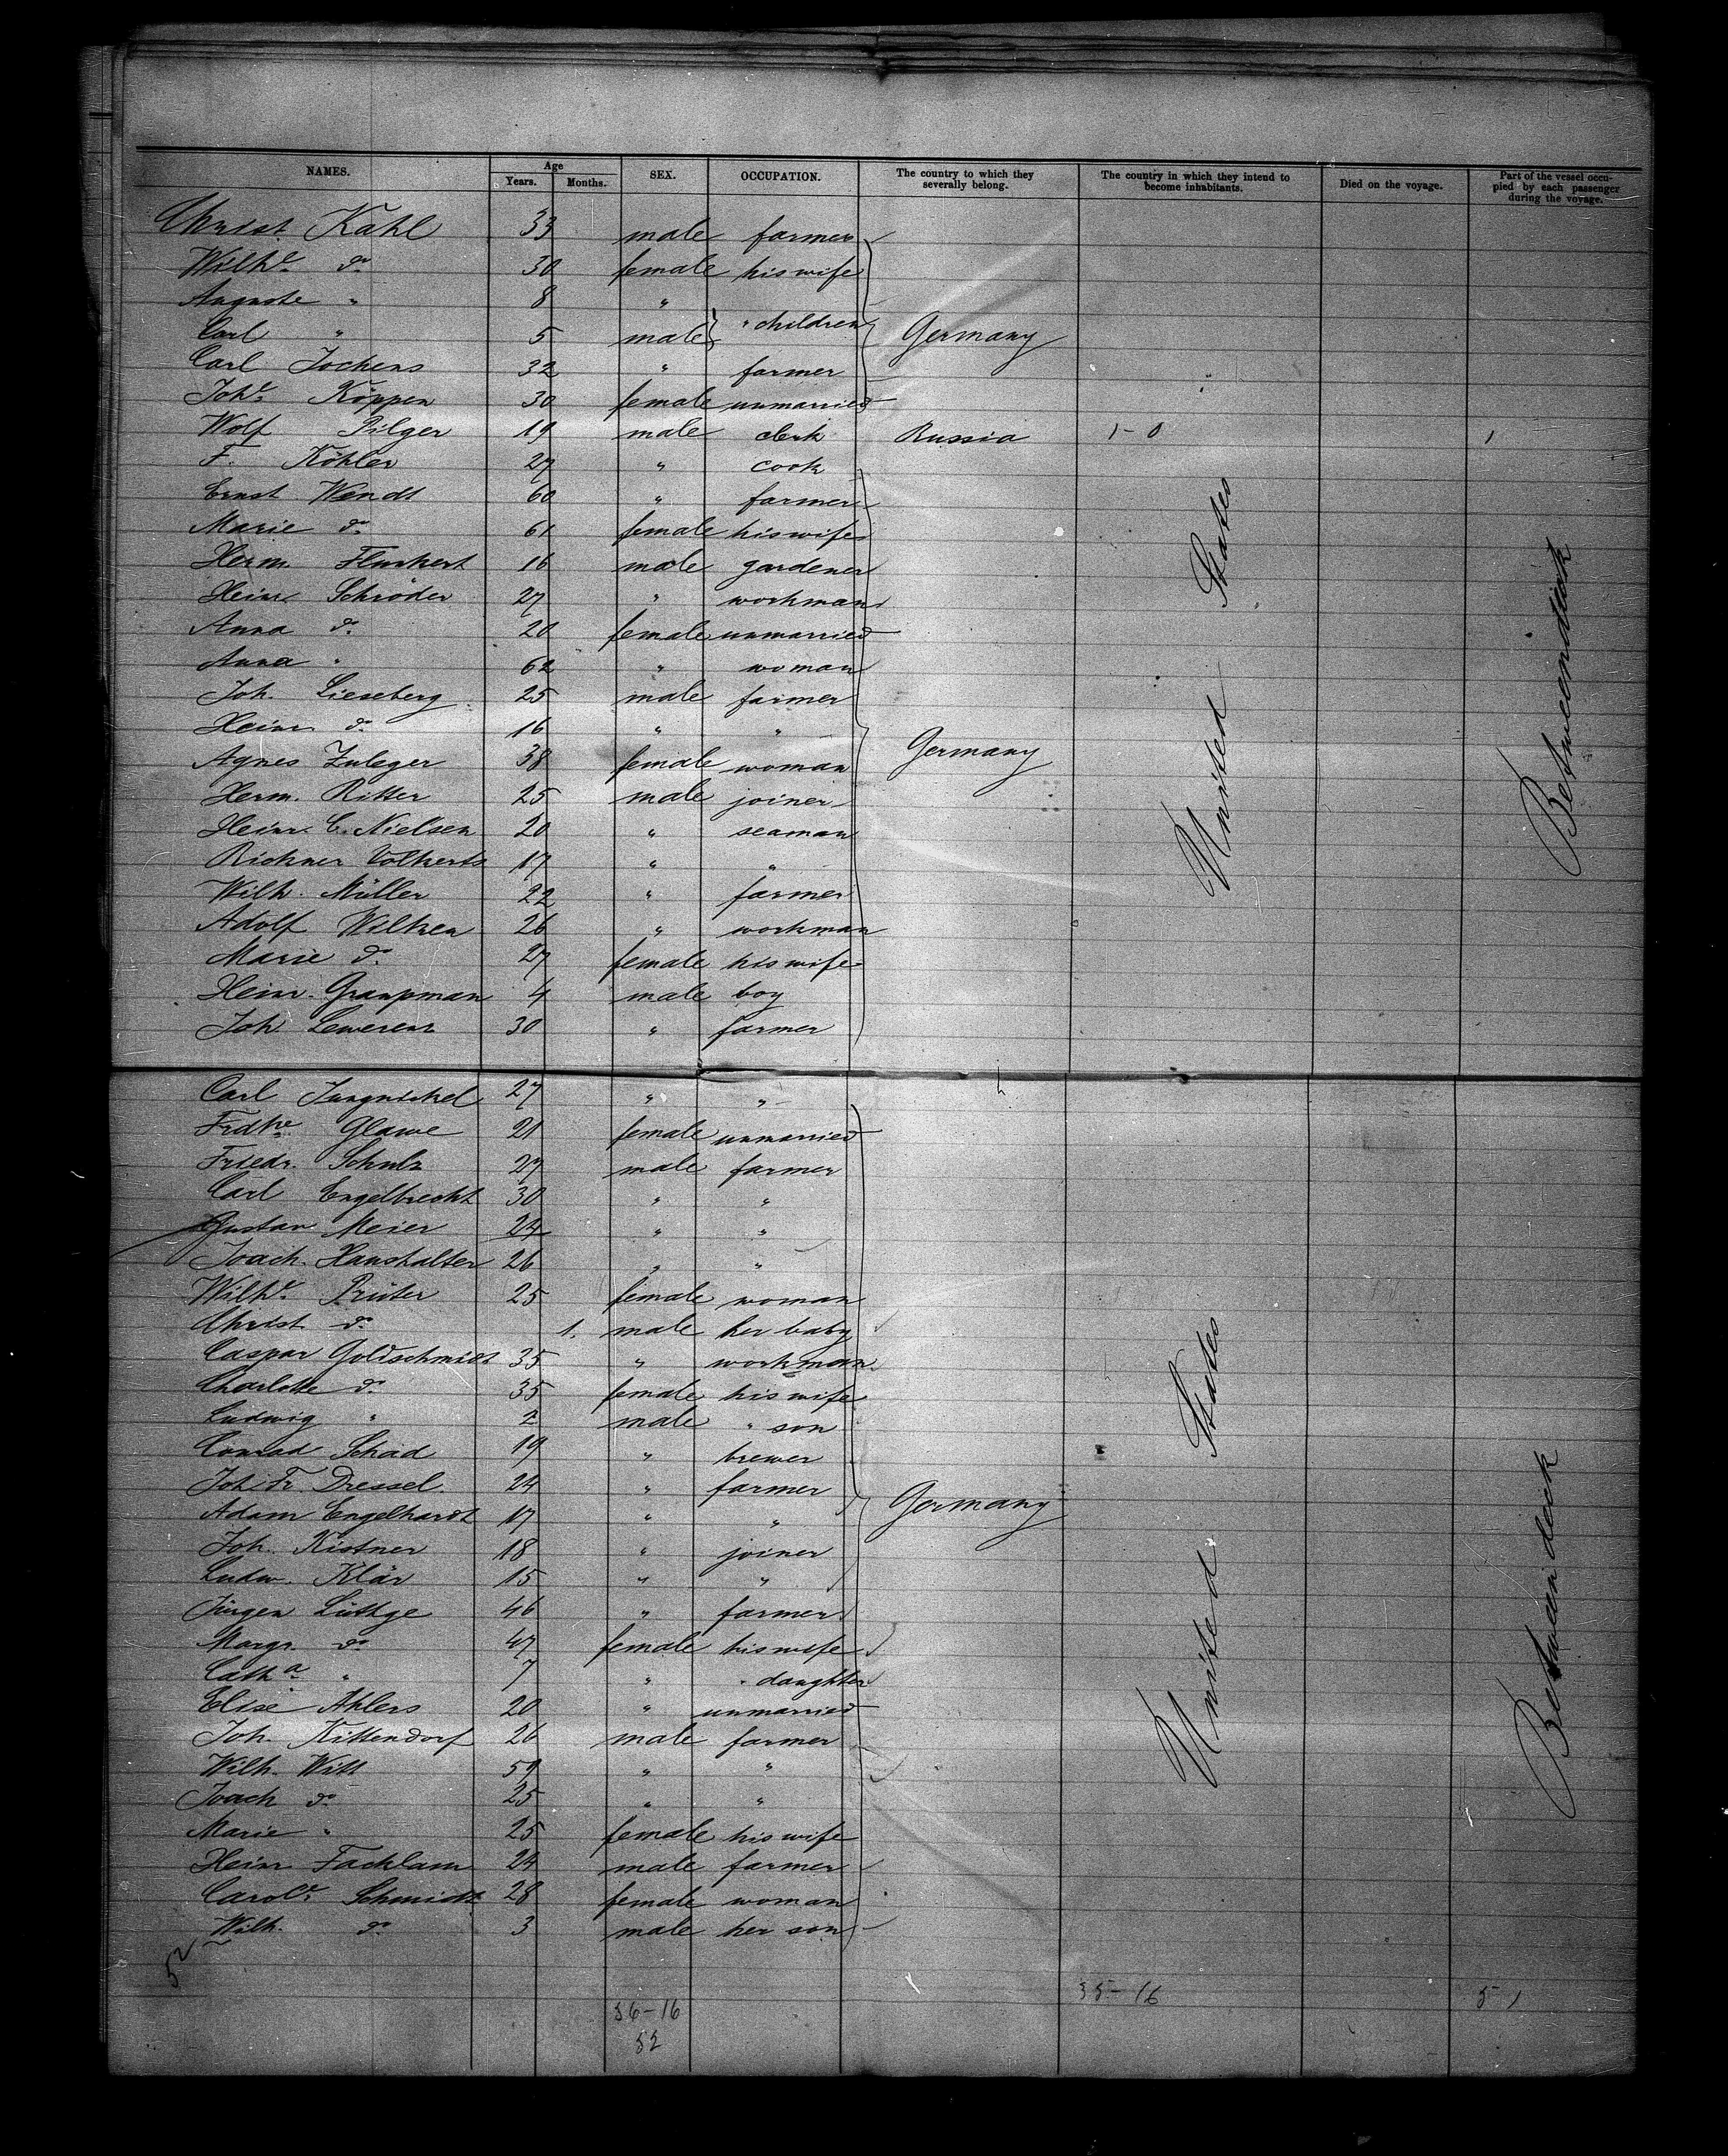 NAMES. Age Years. Months. SEX. OCCUPATION. The country to which they severally belong. The country in which they intend to become inhabitants. Died on the voyage. Part of the vessel occupied by each passenger during the voyage.
Christ. Kahl 33 male farmer
Wilhe. do. 30 female his wife
Auguste " 8 "
Carl " 5 male " children Germany
Carl Jochens 32 " farmer
Johe. Köppen 30 female unmarried
Wolf Pilger 19 male clerk Russia 1-0 1
F. Köhler 27 " cook
Ernst Wendt 60 " farmer
Marie do. 61 female his wife
Herm. 16 male gardener
Heinr. Schröder 27 " workman
Anna do. 20 female unmarried
Anna " 62 " woman
Joh. Lieseberg 25 male farmer
Heinr. do. 16 " "
Agnes Zuleger 38 female woman Germany
Herm. Ritter 25 male joiner
Heinr. C. Nielsen 20 " seaman
Volkerts 17 " "
Wilh. Müller 22 " farmer
Adolf Wilken 26 " workman
Marie do. 27 female his wife
Heinr. Graupman 4 male boy
Joh. Lewerenz 30 " farmer
United States
Betweendeck
Carl Jungnickel 27 " "
Frdke Glawe 21 female unmarried
Friedr. Schulz 27 male farmer
Carl Engelbrecht 30 " "
Gustav Meier 24 " "
Joach. Haushalter 26 " "
Wilhe. Prüter 25 female woman
Christ. do. 1. male her baby
Caspar Goldschmidt 35 " workman
Charlotte do. 35 female his wife
Ludwig " 2 male " son
Conrad Schad 19 " brewer
Joh. Fr. Dressel 24 " farmer
Adam Engelhardt 17 " " Germany
Joh. Kistner 18 " joiner
Ludw. Klär 15 " "
Jürgen Lüthge 46 " farmer
Margr. do. 47 female his wife
Catha " 7 " " daughter
Elise Ahlers 20 " unmarried
Joh. Kittendorf 26 male farmer
Wilh. Witt 59 " "
Joach do. 25 " "
Marie " 25 female his wife
Heinr Fachlam 24 male farmer
Carole. Schmidt 28 female woman
Wilh. do. 3 male her son
United States
Betweendeck
52
35-16 51
36-16
52